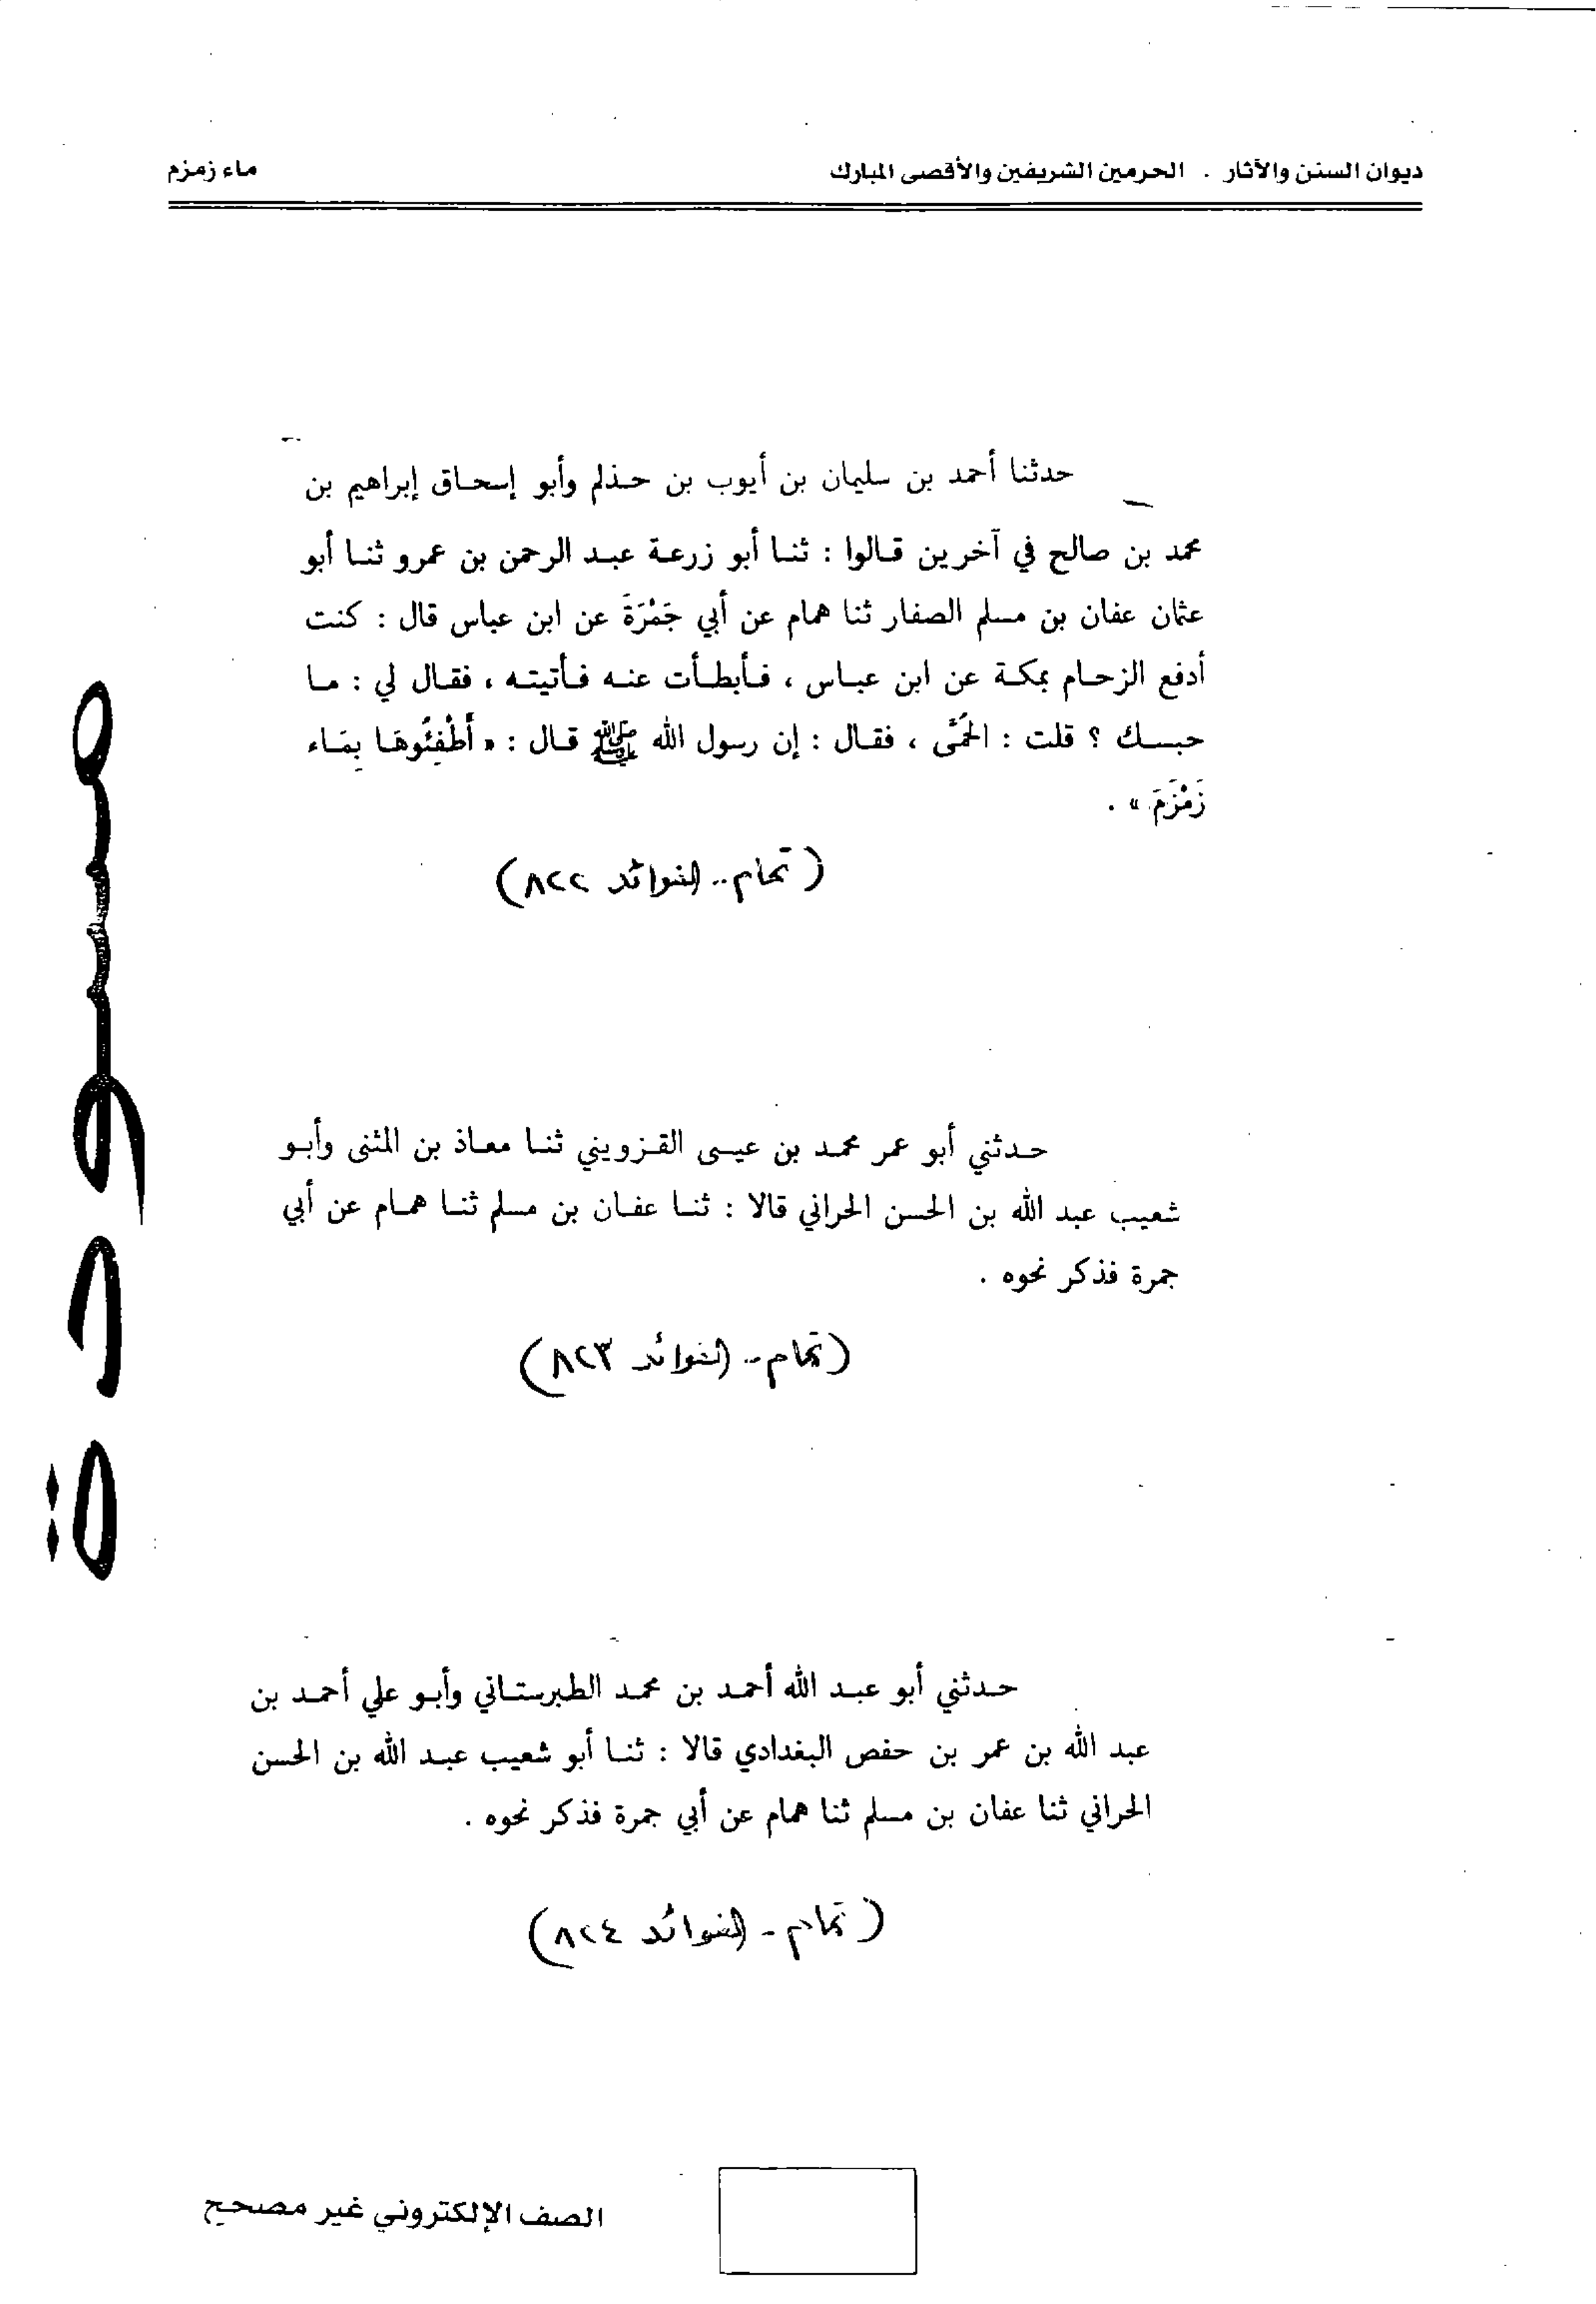 ديوان السنن والآثار . الحرمين الشريفين والأقصى المبارك
ماء زمزم
حدثنا أحمد بن سليمان بن أيوب بن حـذلم وأبو إسحـاق إبراهيم بن
محمد بن صالح في آخرين قـالوا : ثنـا أبو زرعـة عبـد الرحمن بن عمرو ثنـا أبو
عثمان عفان بن مسلم الصفار ثنا همام عن أبي جَمْرَةَ عن ابن عباس قال : كنت
أدفع الزحـام بمكـة عن ابن عبـاس ، فـأبطـأت عنـه فـأتيتـه ، فقـال لي : مـا
حبسـك ؟ قلت : الحُمَّى ، فقـال : إن رسول الله ﷺ قـال : « أَطْفِئُوهَـا بِمَـاء
زَمْزَمَ » .
( تمام .. الفوائد ٨٢٢ )
حـدثني أبو عمر محمـد بن عيسى القـزويني ثنـا معـاذ بن المثنى وأبـو
شعيب عبد الله بن الحسن الحراني قالا : ثنـا عفـان بن مسلم ثنـا همـام عن أبي
جمرة فذكر نحوه .
( تمام - الفوائد ٨٢٣ )
حـدثني أبو عبـد الله أحمـد بن محمـد الطبرستـاني وأبـو علي أحمـد بن
عبد الله بن عمر بن حفص البغدادي قالا : ثنـا أبو شعيب عبـد الله بن الحسن
الحراني ثنا عفان بن مسلم ثنا همام عن أبي جمرة فذكر نحوه .
( تمام - الفوائد ٨٢٤ )
مسودة
الصف الإلكتروني غير مصحح